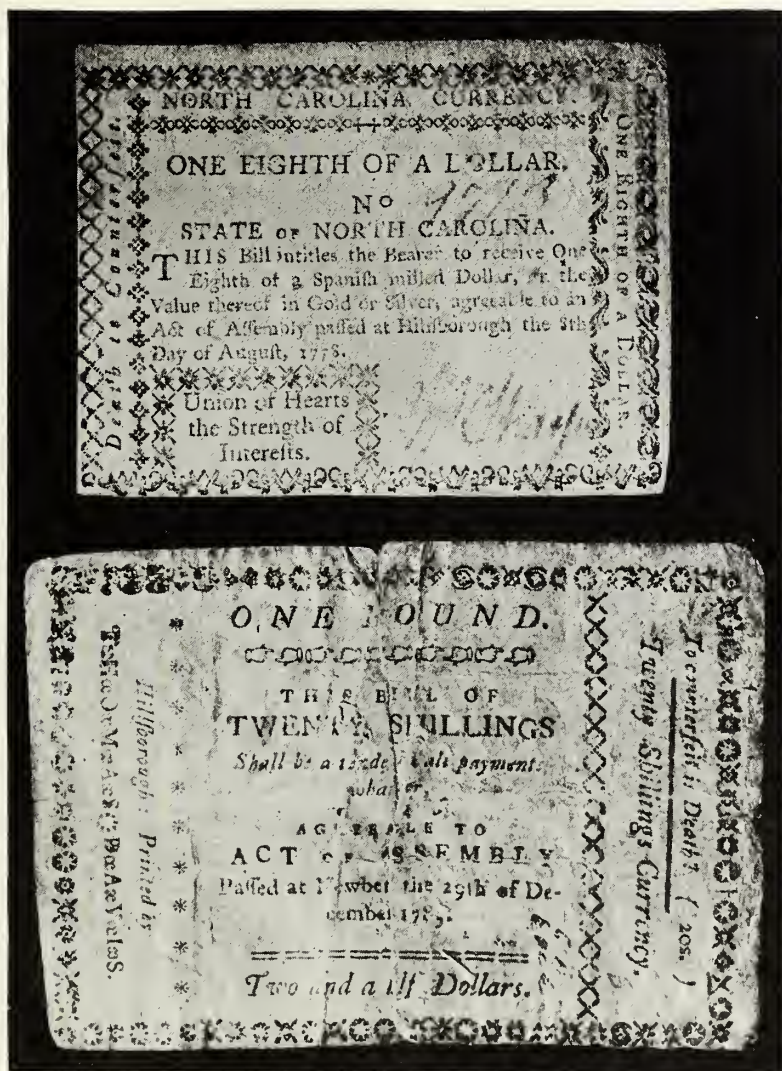 NORTH CAROLINA CURRENCY.
ONE EIGHTH OF A DOLLAR.
No
STATE OF NORTH CAROLINA.
THIS Bill intitles the Bearer to receive One
Eighth of a Spaniſh milled Dollar, or the
Value thereof in Gold or Silver, agreeable to an
Act of Aſſembly paſſed at Hillſborough the 8th
Day of Auguſt, 1778.
Union of Hearts
the Strength of
Intereſts.
Death to Counterfeit.
ONE EIGHTH OF A DOLLAR.
ONE POUND.
THIS BILL OF
TWENTY SHILLINGS
Shall be a tender in all payments
AGREEABLE TO
ACT OF ASSEMBLY
Paſſed at Newbern the 29th of De-
cember 1785.
Two and a Half Dollars.
Hillſborough: Printed by
To counterfeit is Death. ( 20s. )
Twenty Shillings Currency.